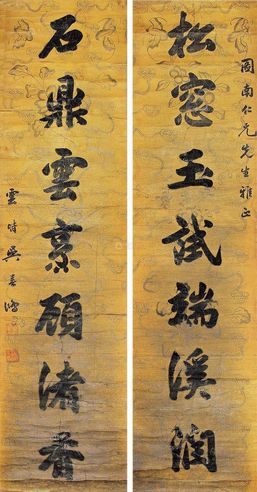 周南仁兄先生雅正
松窓玉試端溪潤
石鼎雲烹顧渚香
雲
吳